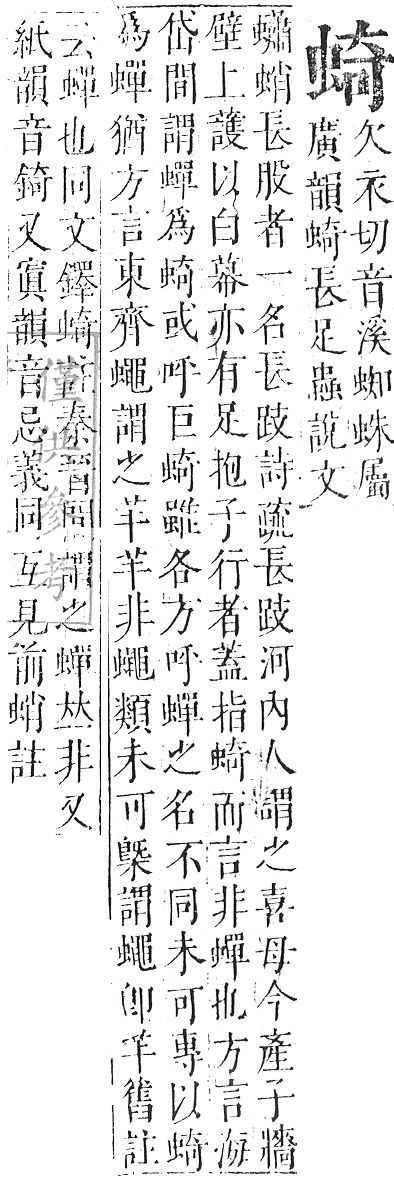 蜝
欠衣切音溪蜘蛛屬
廣韻蜝長足蟲說文
蟰蛸長股者一名長踦詩疏長踦河內人謂之喜母今產子牆
壁上護以白幕亦有足抱子行者蓋指蜝而言非蟬也方言海
岱間謂蟬為蜝或呼巨蜝雖各方呼蟬之名不同未可專以蜝
為蟬猶方言東齊蠅謂之羊羊非蠅類未可槩謂蠅卽羊舊註
云蟬也同文鐸蜝齊秦晉謂之蟬𠀤非又
紙韻音錡又寘韻音忌義同互見前蛸註